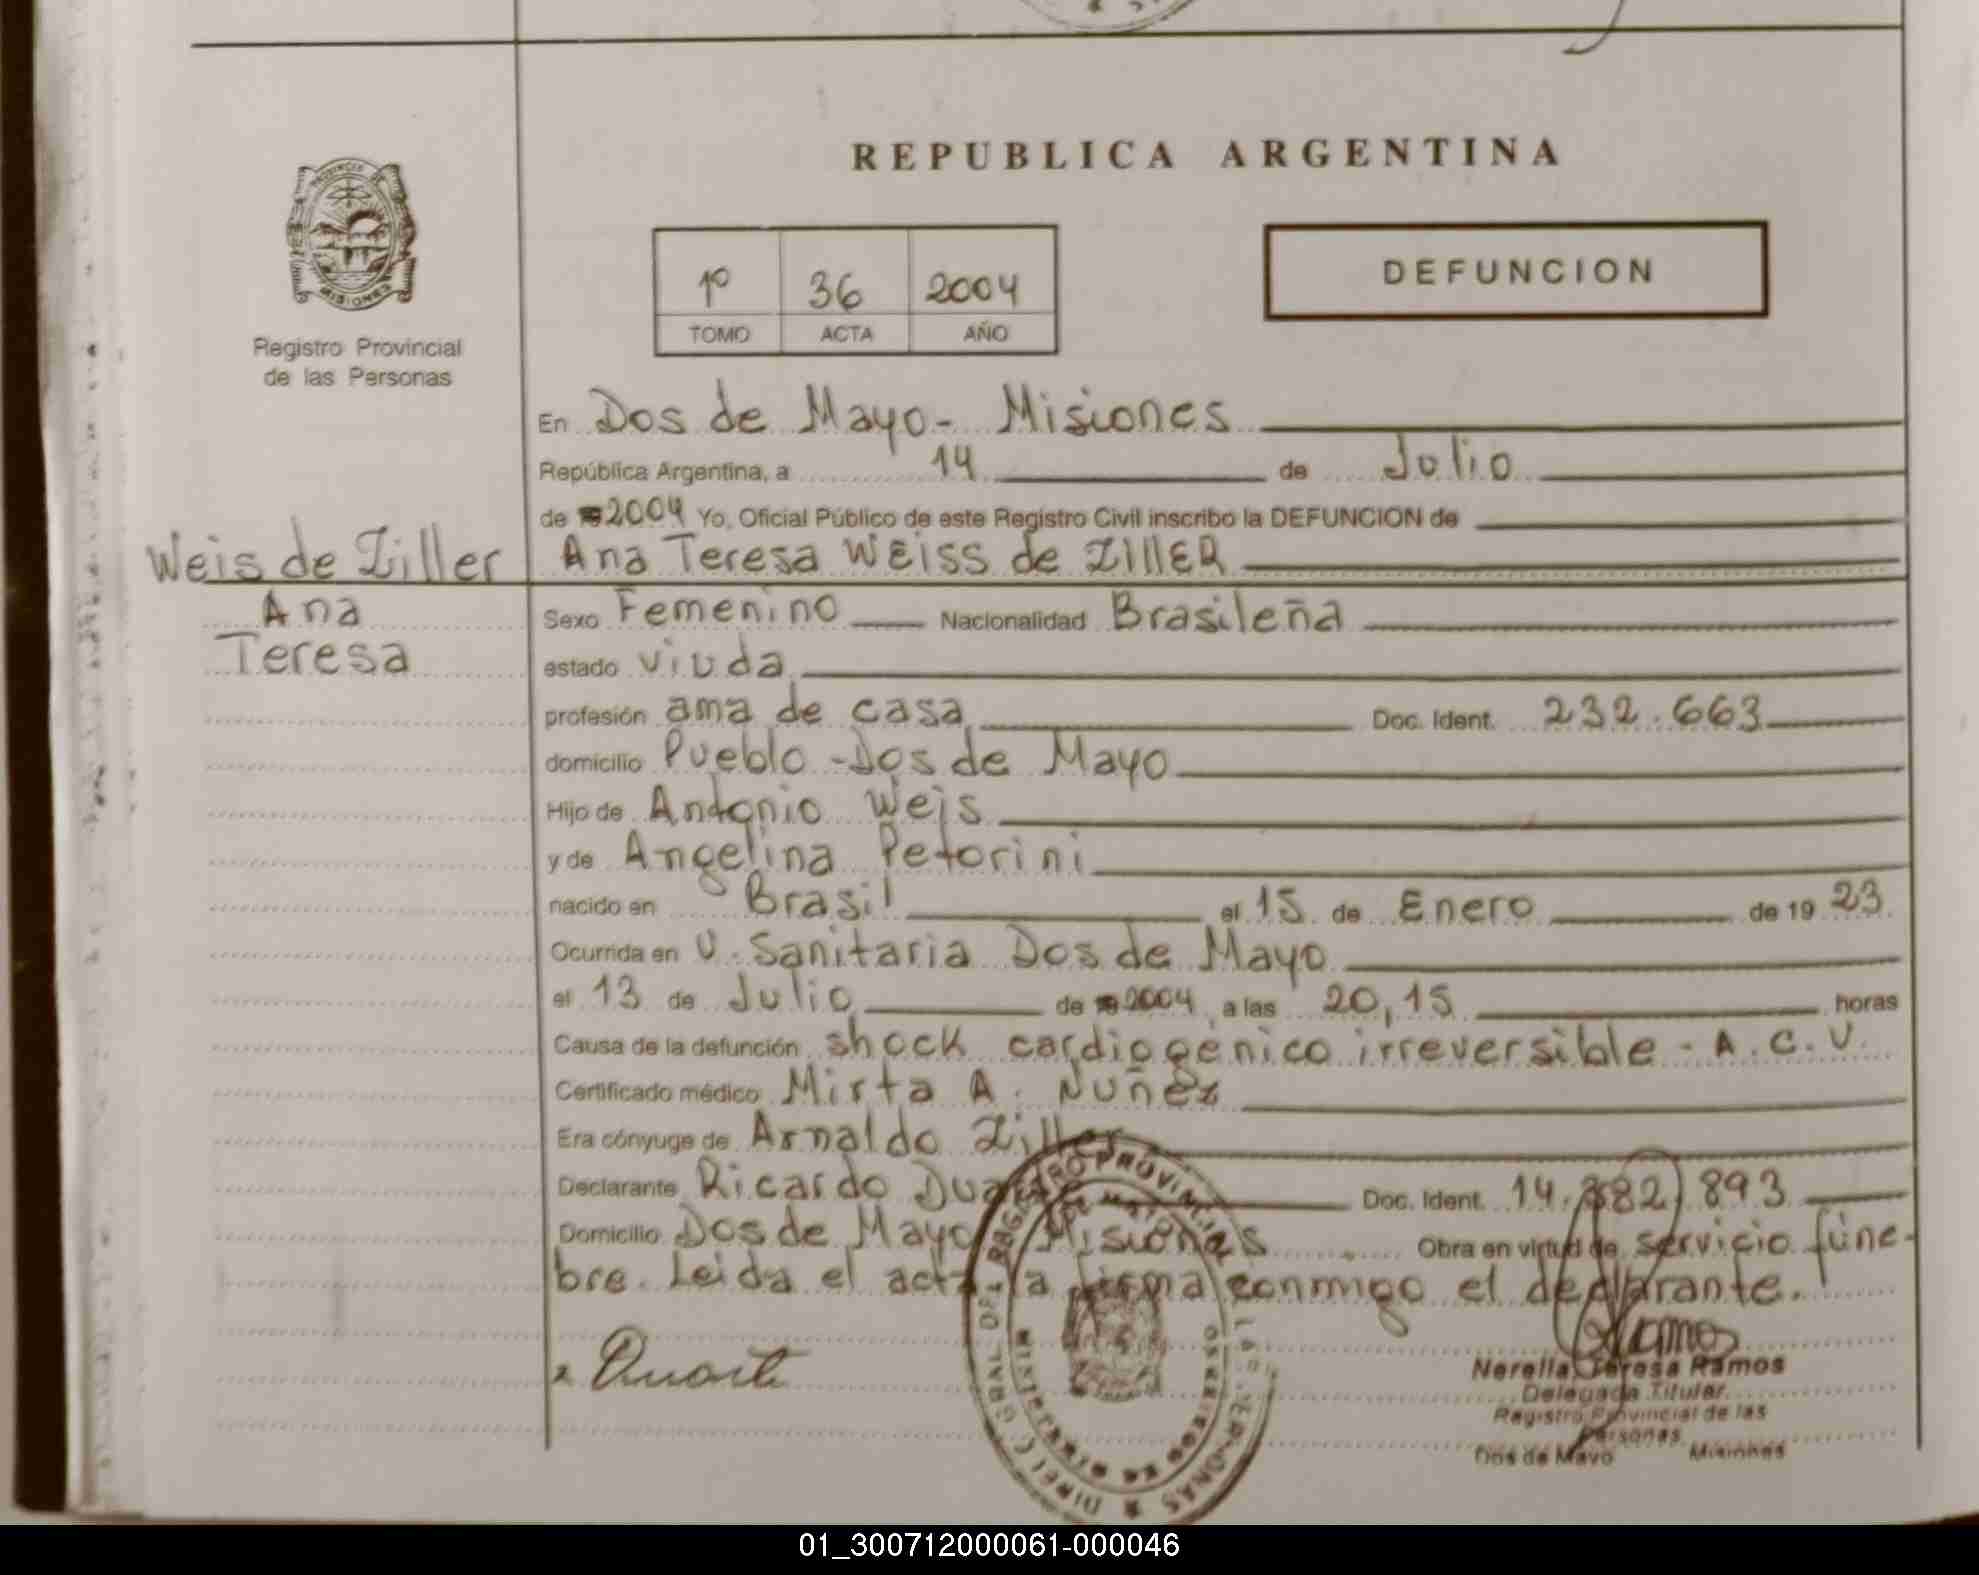 REPUBLICA ARGENTINA
PROVINCIA DE
MISIONES
Registro Provincial
de las Personas
1º 36 2004
TOMO ACTA AÑO
DEFUNCION
En Dos de Mayo - Misiones
República Argentina, a 14 de Julio
de 2004 Yo, Oficial Público de este Registro Civil inscribo la DEFUNCION de
Weis de Ziller
Ana
Teresa
Ana Teresa WEISS de ZILLER
Sexo Femenino Nacionalidad Brasileña
estado viuda
profesión ama de casa Doc. Ident. 232.663
domicilio Pueblo - Dos de Mayo
Hijo de Antonio Weis
y de Angelina Petorini
nacido en Brasil el 15 de Enero de 19 23
Ocurrida en U. Sanitaria Dos de Mayo
el 13 de Julio de 2004 a las 20,15 horas
Causa de la defunción shock cardiogenico irreversible - A.C.V.
Certificado médico Mirta A. Nuñez
Era cónyuge de Arnaldo Ziller
Declarante Ricardo Duarte Doc. Ident. 14.382.893
Domicilio Dos de Mayo Misiones Obra en virtud de servicio fúne-
bre. Leida el acta la firma conmigo el declarante.
x Duarte
Ramos
Nerella Teresa Ramos
Delegada Titular
Registro Provincial de las
Personas
Dos de Mayo Misiones
01_300712000061-000046